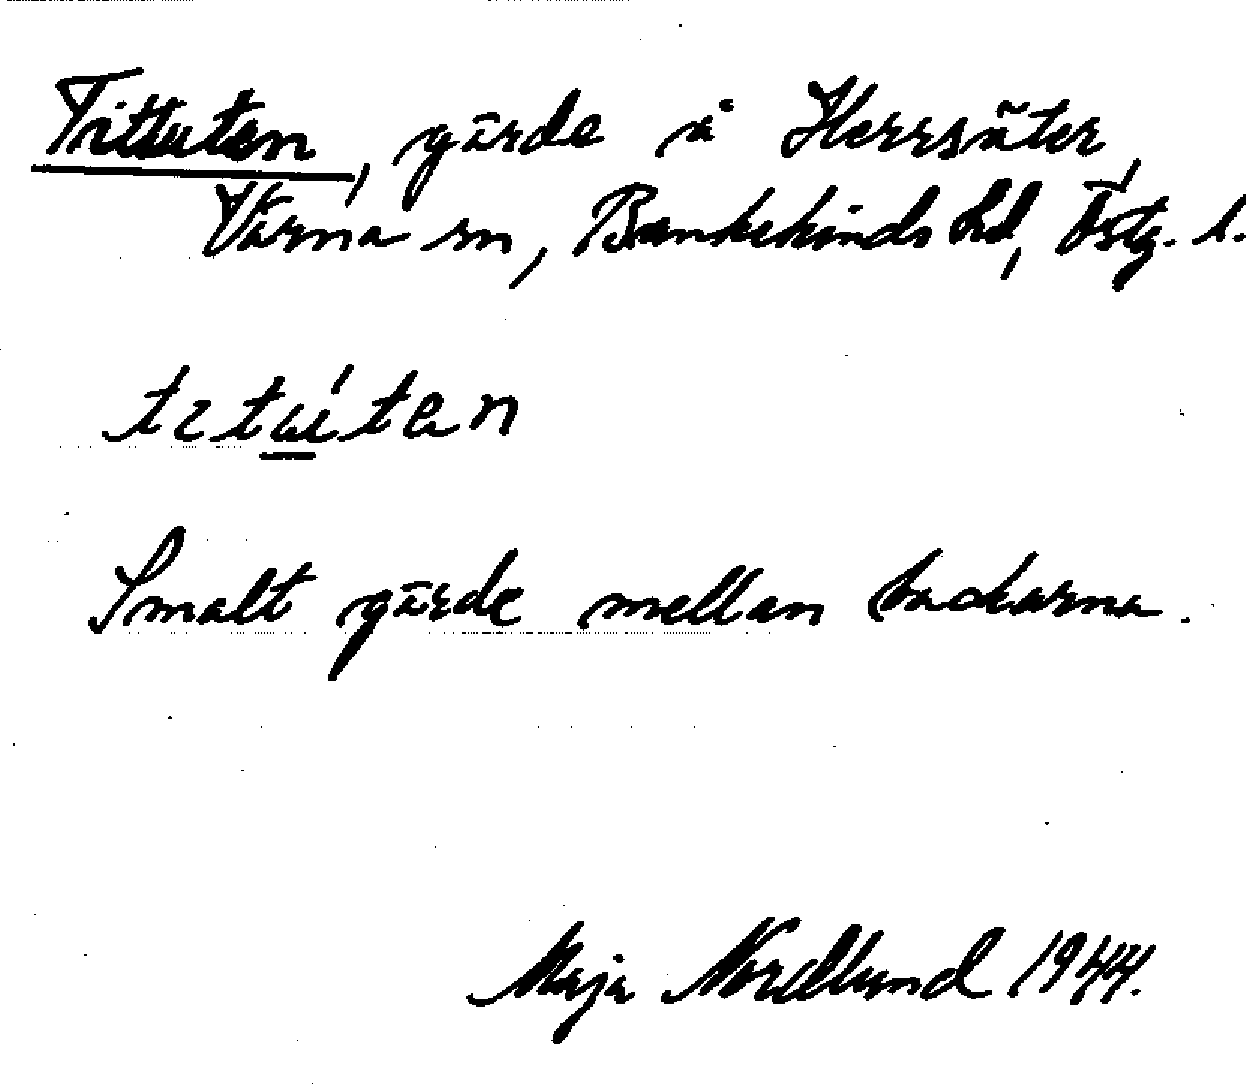 Tittuten, gärde å Herrsäter,
Värna sn, Bankekinds hd, Östg. l.
tɩtú̲ten
Smalt gärde mellan backarna.
Maja Nordlund 1944.